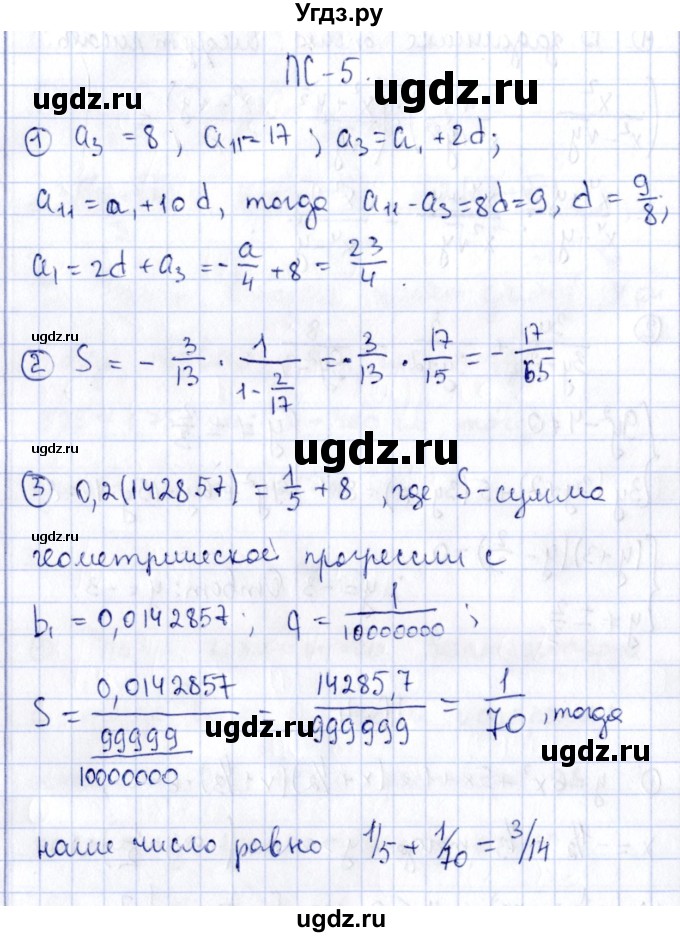 Угдз.ру
ПС-5.
ugdz.ru ugdz.ru
① a₃ = 8 ; a₁₁ = 17 ; a₃ = a₁ + 2d;
a₁₁ = a₁ + 10d, тогда a₁₁ - a₃ = 8d = 9, d = 9/8;
ugdz.ru
a₁ = 2d + a₃ = - a/4 + 8 = 23/4.
ugdz.ru
② S = - 3/13 · 1/(1 - 2/17) = - 3/13 · 17/15 = - 17/65.
ugdz.ru
ugdz.ru
③ 0,2(142857) = 1/5 + 8, где S-сумма
ugdz.ru
геометрической прогрессии с
b₁ = 0,0142857; q = 1/10000000;
ugdz.ru
S = 0,0142857/(99999/10000000) = 14285,7/999999 = 1/70, тогда
ugdz.ru ugdz.ru
наше число равно 1/5 + 1/70 = 3/14
ugdz.ru
ugdz.ru